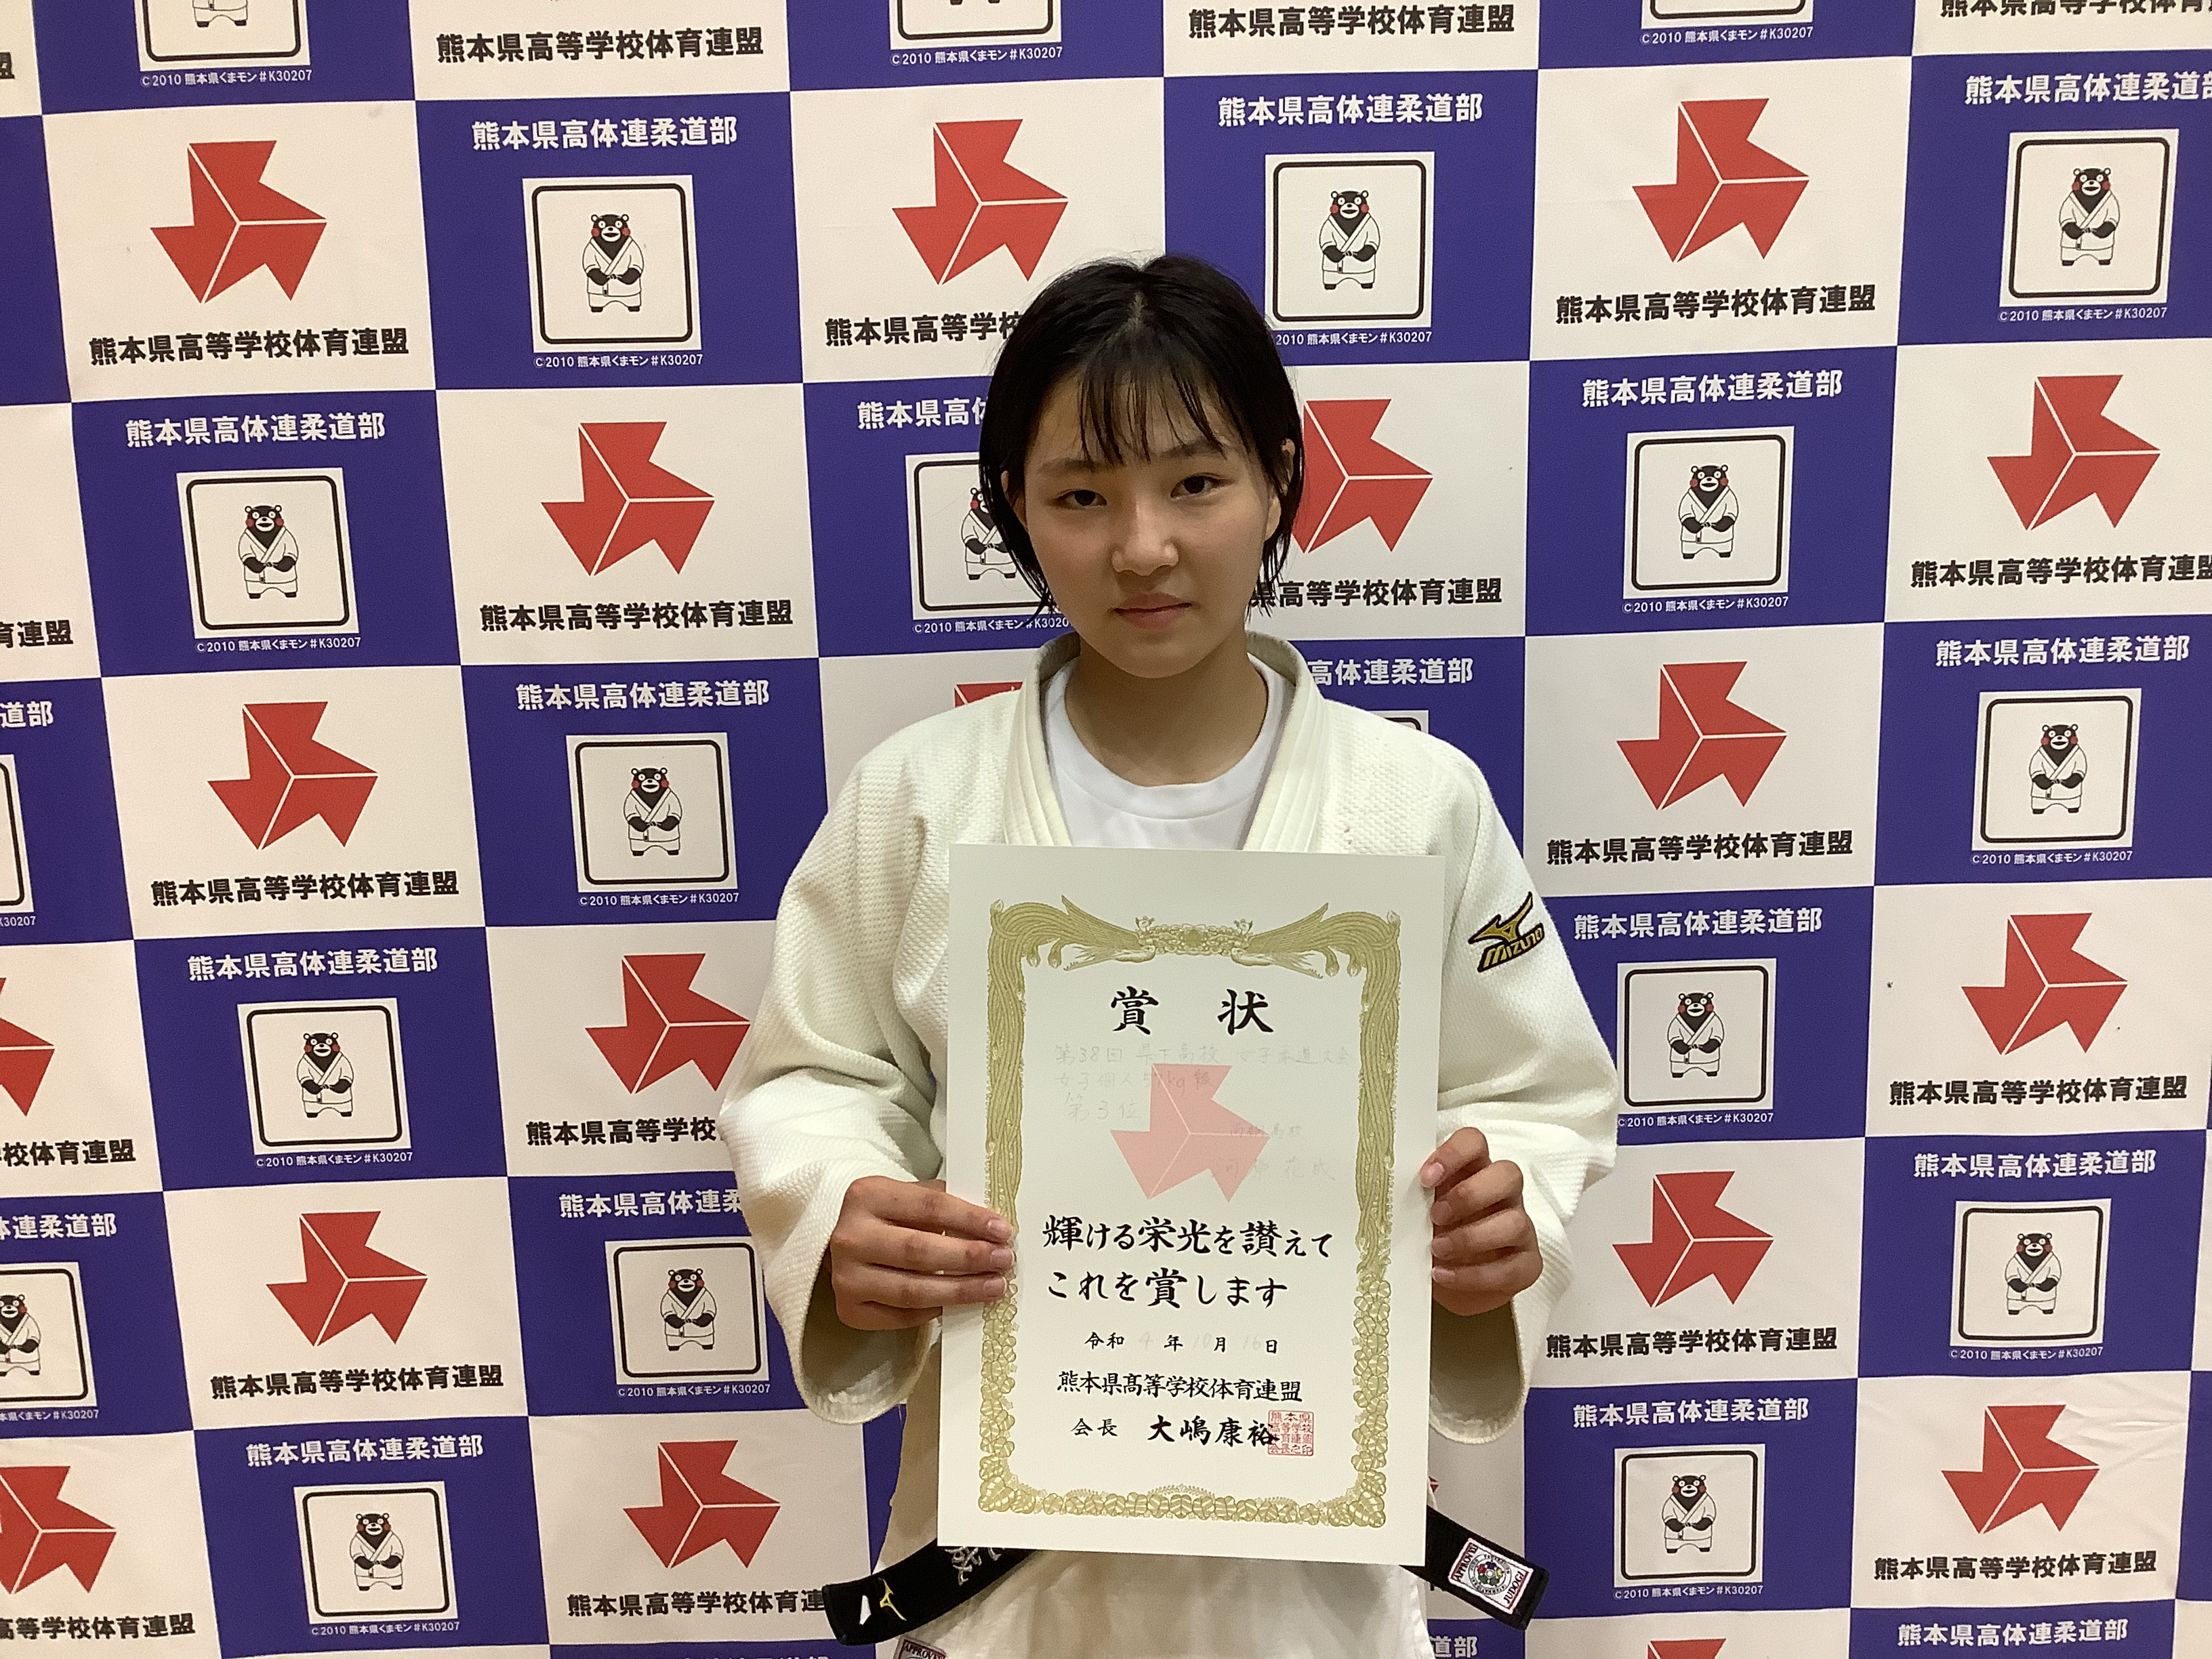 熊本県高等学校体育連盟
©2010 熊本県くまモン#K30207
熊本県高体連柔道部
MIZUNO
賞状
第38回 県下高校 女子柔道大会
女子個人
kg級
第3位
高校
輝ける栄光を讃えて
これを賞します
令和 4 年 10 月 16 日
熊本県高等学校体育連盟
会長 大嶋康裕
APPROVED
JUDOGI